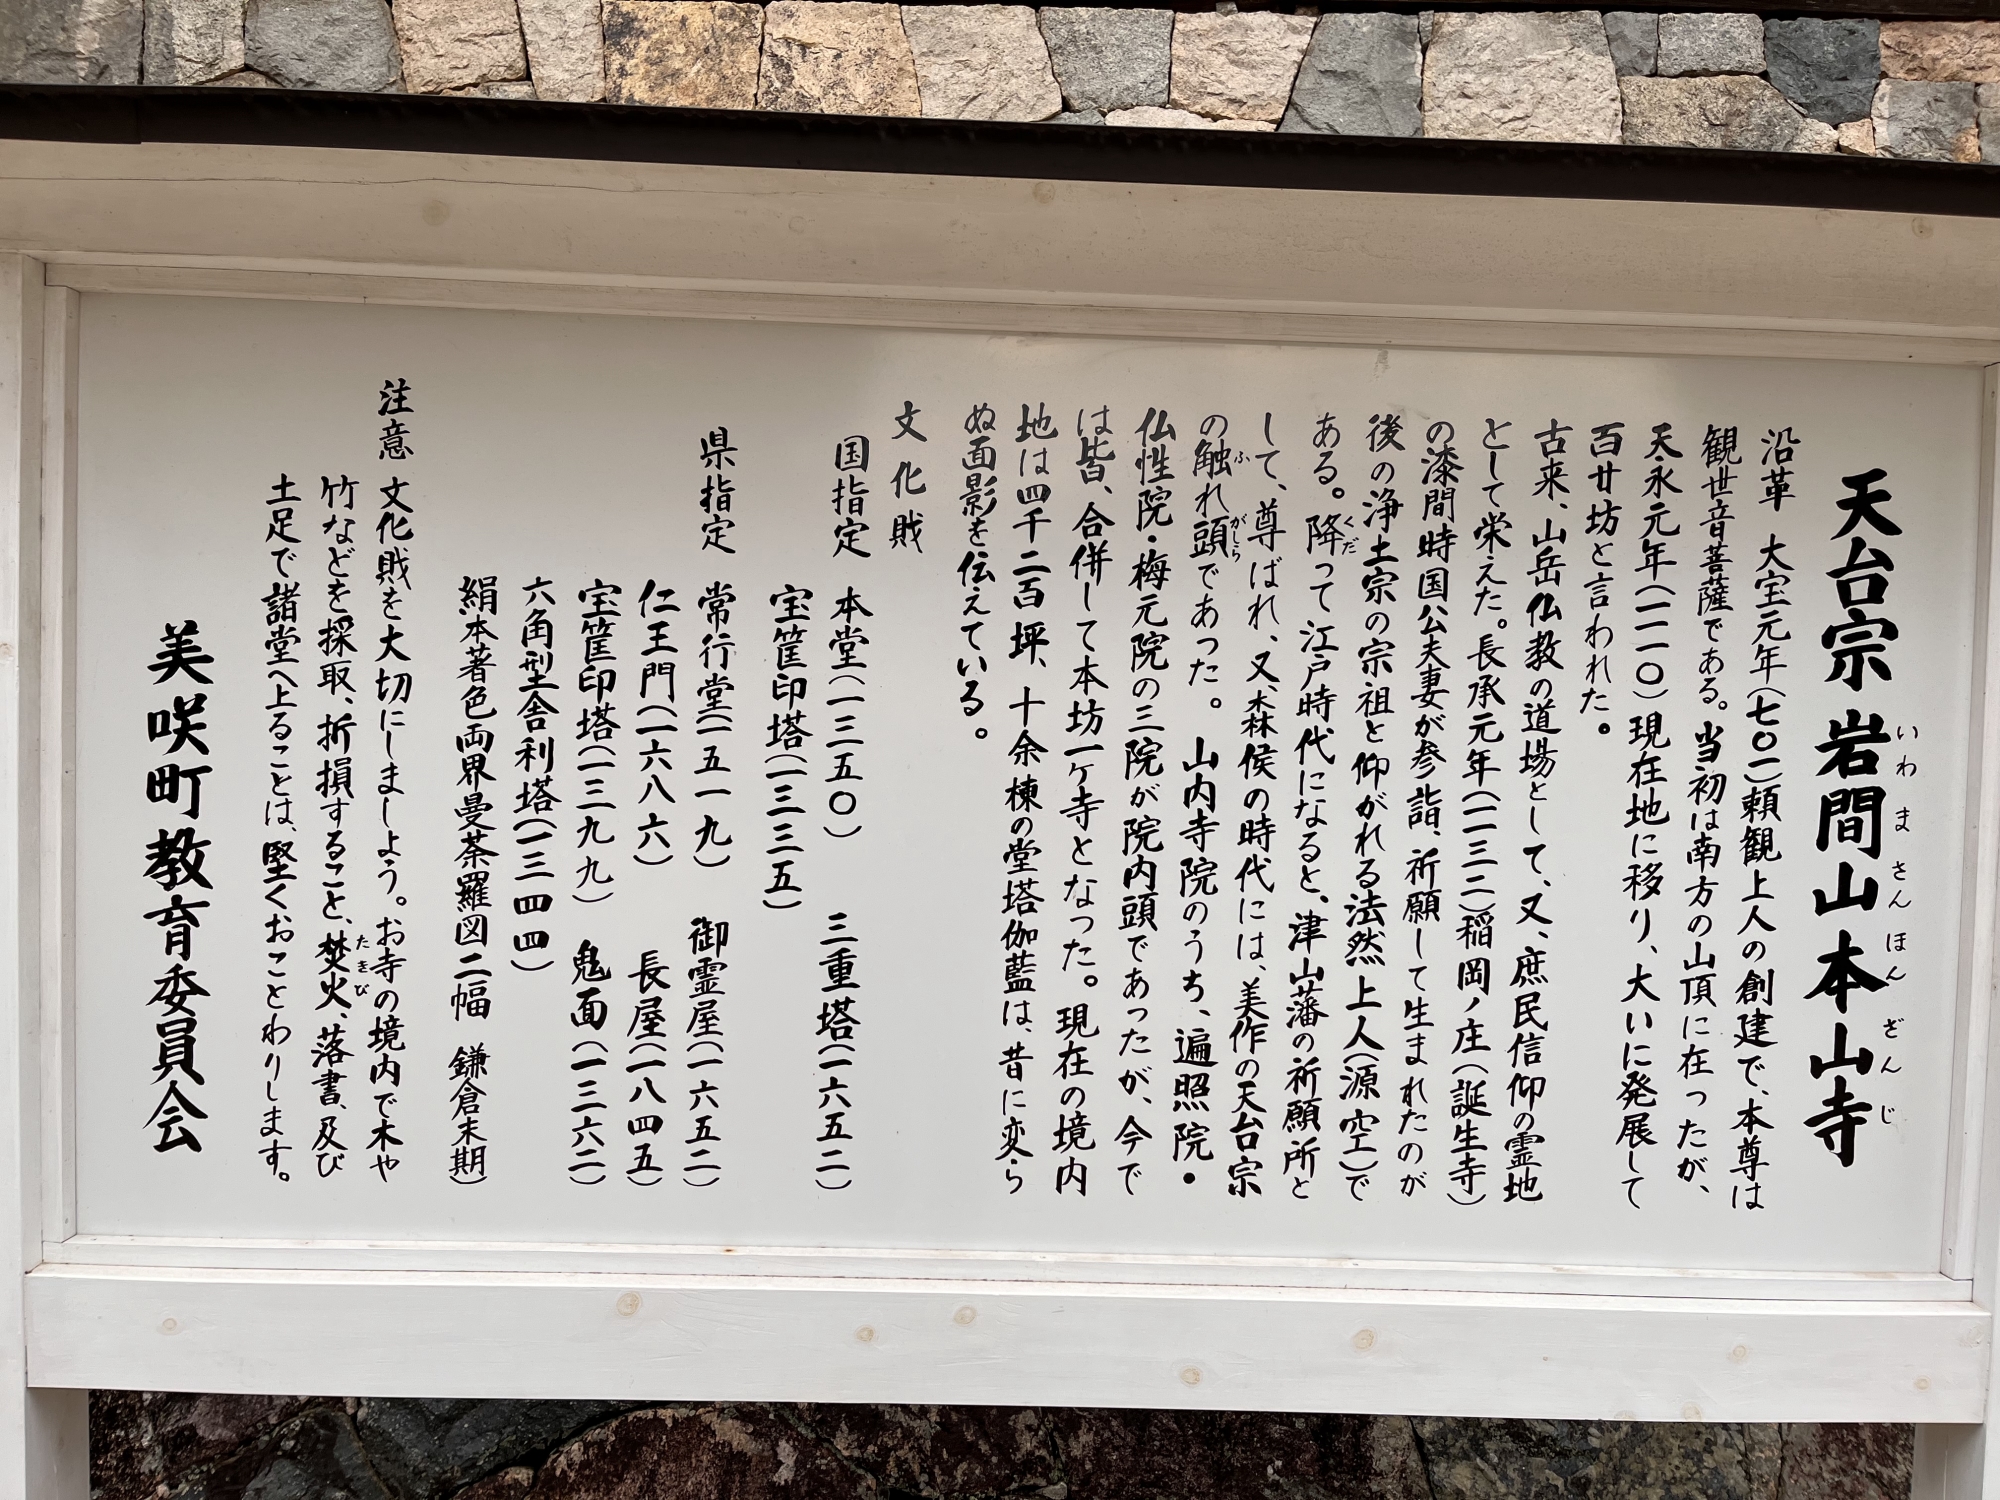 天台宗 岩間山本山寺
いわ ま さん ほん ざん じ
沿革 大宝元年(七〇一)頼観上人の創建で、本尊は
観世音菩薩である。当初は南方の山頂に在ったが、
天永元年(一一一〇)現在地に移り、大いに発展して
百廿坊と言われた。
古来、山岳仏教の道場として、又、庶民信仰の霊地
として栄えた。長承元年(一一三二)稲岡ノ庄(誕生寺)
の漆間時国公夫妻が参詣、祈願して生まれたのが
後の浄土宗の宗祖と仰がれる法然上人(源空)で
ある。降って江戸時代になると、津山藩の祈願所と
くだ
して、尊ばれ、又、森侯の時代には、美作の天台宗
の触れ頭であった。山内寺院のうち、遍照院・
ふ がしら
仏性院・梅元院の三院が院内頭であったが、今で
は皆、合併して本坊一ヶ寺となった。現在の境内
地は四千二百坪、十余棟の堂塔伽藍は、昔に変ら
ぬ面影を伝えている。
文化財
国指定 本堂(一三五〇) 三重塔(一六五二)
宝筐印塔(一三三五)
県指定 常行堂(一五一九) 御霊屋(一六五二)
仁王門(一六八六) 長屋(一八四五)
宝筐印塔(一三九九) 鬼面(一三六二)
六角型舎利塔(一三四四)
絹本著色両界曼荼羅図二幅 鎌倉末期)
注意 文化財を大切にしましよう。お寺の境内で木や
竹などを採取、折損すること、焚火、落書、及び
たき び
土足で諸堂へ上ることは、堅くおことわりします。
美咲町教育委員会